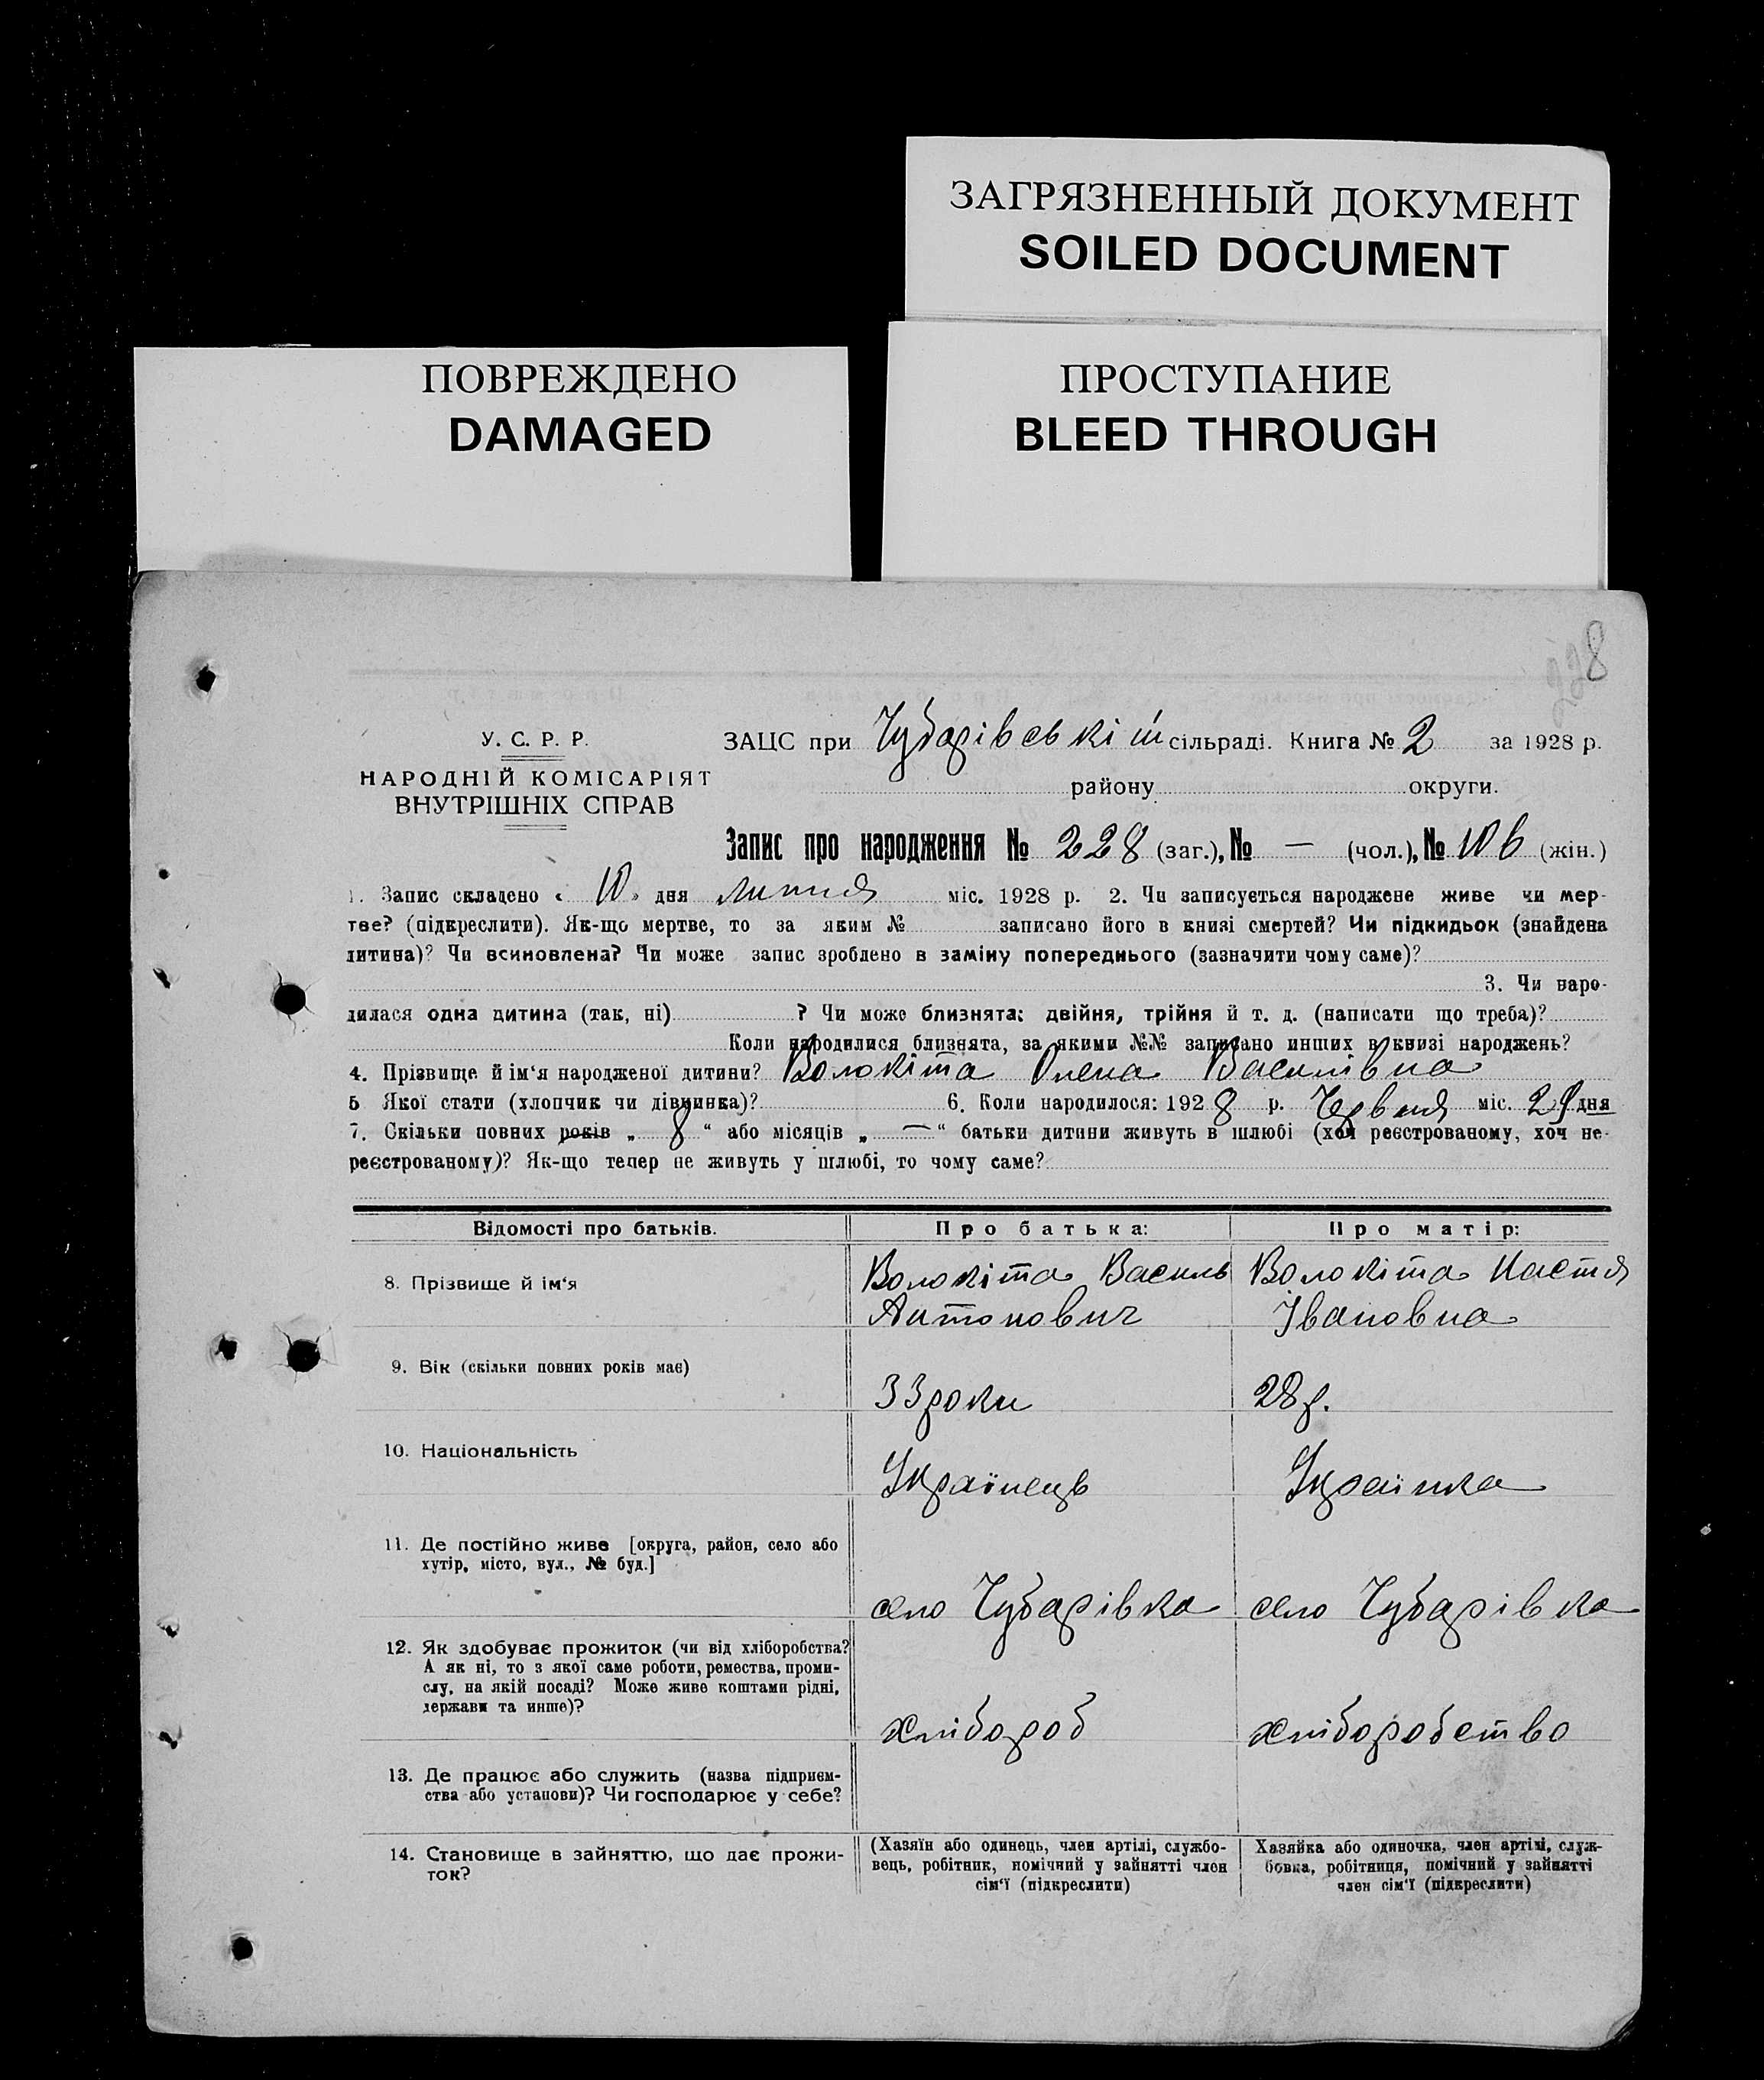 ЗАГРЯЗНЕННЫЙ ДОКУМЕНТ
SOILED DOCUMENT
ПОВРЕЖДЕНО
DAMAGED
ПРОСТУПАНИЕ
BLEED THROUGH
228
У. С. Р. Р.
НАРОДНІЙ КОМІСАРІЯТ
ВНУТРІШНІХ СПРАВ
ЗАЦС при Чубарівській сільраді. Книга № 2 за 1928 р.
району округи.
Запис про народження № 228 (заг.), № — (чол.), № 106 (жін.)
1. Запис складено « 10 » дня липня міс. 1928 р. 2. Чи записується народжене живе чи мер-
тве? (підкреслити). Як-що мертве, то за яким № записано його в книзі смертей? Чи підкидьок (знайдена
дитина)? Чи всиновлена? Чи може запис зроблено в заміну попереднього (зазначити чому саме)?
3. Чи наро-
дилася одна дитина (так, ні) ? Чи може близнята: двійня, трійня й т. д. (написати що треба)?
Коли народилися близнята, за якими №№ записано инших в книзі народжень?
4. Прізвище й ім'я народженої дитини? Волокіта Олена Василівна
5 Якої стати (хлопчик чи дівчинка)? 6. Коли народилося: 1928 р. Червня міс. 29 дня
7. Скільки повних років „ 8 “ або місяців „ — “ батьки дитини живуть в шлюбі (хоч реєстрованому, хоч не-
реєстрованому)? Як-що тепер не живуть у шлюбі, то чому саме?
Відомості про батьків. Про батька: Про матір:
8. Прізвище й ім'я Волокіта Василь Волокіта Настя
Антонович Івановна
9. Вік (скільки повних років має)
33 роки 28 р.
10. Національність
Українець Українка
11. Де постійно живе [округа, район, село або
хутір, місто, вул., № буд.]
село Чубарівка село Чубарівка
12. Як здобуває прожиток (чи від хліборобства?
А як ні, то з якої саме роботи, ремества, проми-
слу, на якій посаді? Може живе коштами рідні,
держави та инше)?
хлібороб хліборобство
13. Де працює або служить (назва підприєм-
ства або установи)? Чи господарює у себе?
14. Становище в зайняттю, що дає прожи-
ток?
(Хазяїн або одинець, член артілі, службо-
вець, робітник, помічний у зайнятті член
сім'ї (підкреслити)
Хазяйка або одиночка, член артілі, служ-
бовка, робітниця, помічний у зайнятті
член сім'ї (підкреслити)